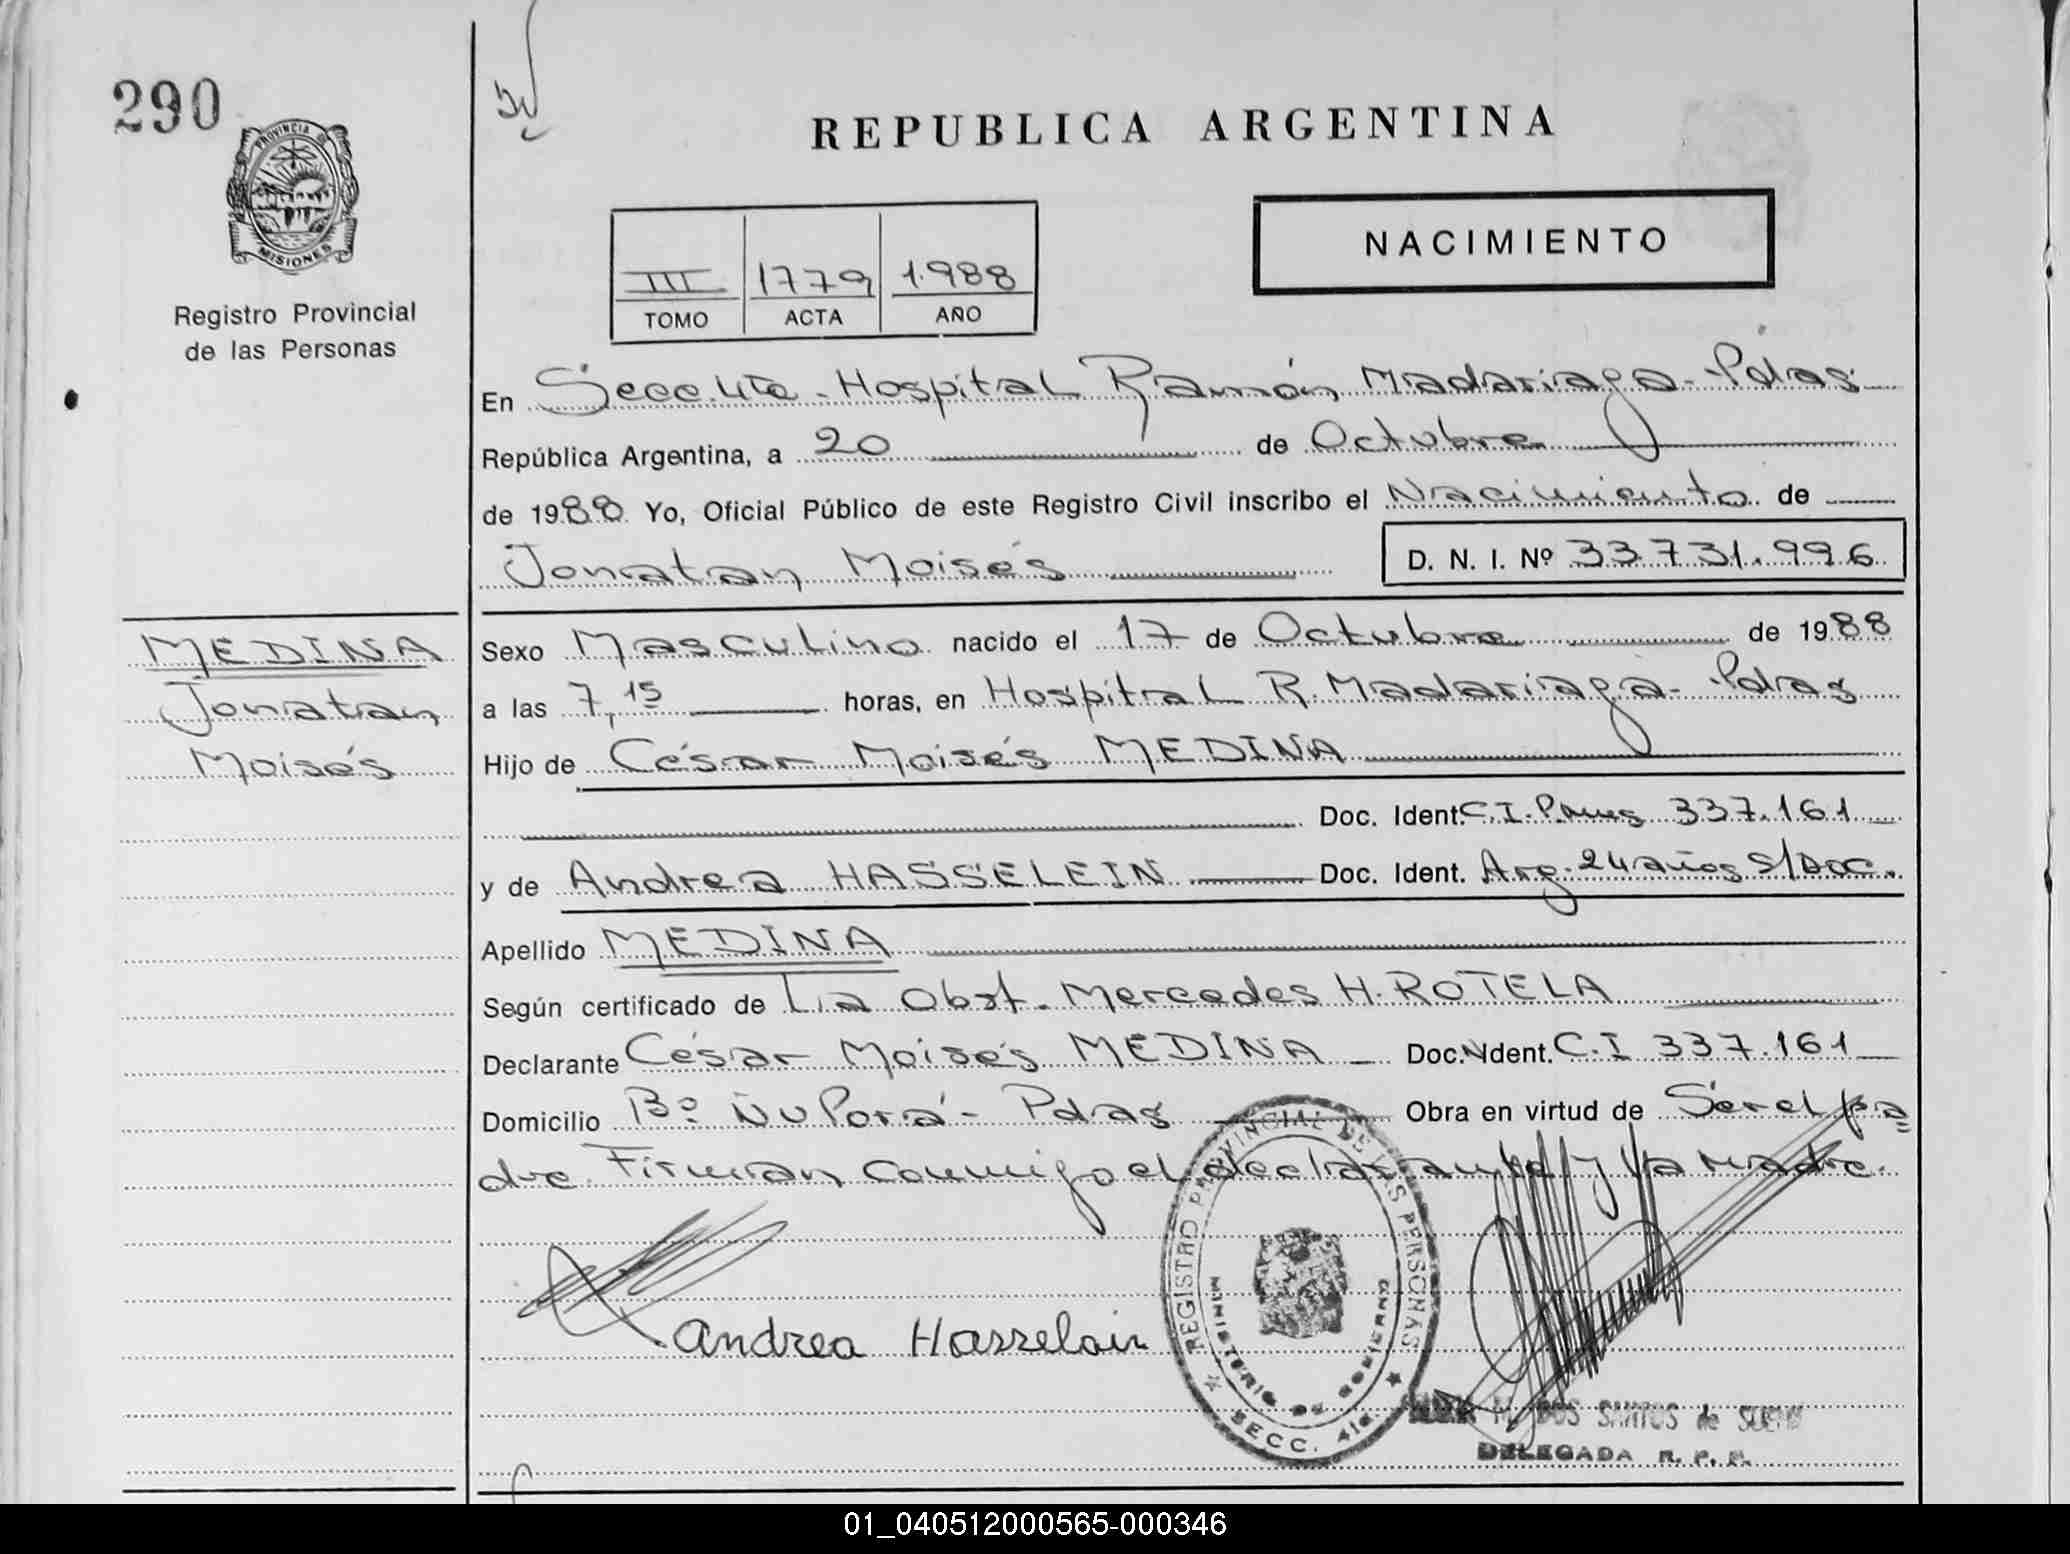 290
PROVINCIA DE
MISIONES
Registro Provincial
de las Personas
REPUBLICA ARGENTINA
NACIMIENTO
III 1779 1988
TOMO ACTA AÑO
En Secc. 4ta - Hospital Ramón Madariaga - Pdas
República Argentina, a 20 de Octubre
de 1988 Yo, Oficial Público de este Registro Civil inscribo el Nacimiento de
Jonatan Moisés D. N. I. Nº 33.731.996
MEDINA
Jonatan
Moisés
Sexo Masculino nacido el 17 de Octubre de 1988
a las 7,15 horas, en Hospital R. Madariaga - Pdas
Hijo de César Moisés MEDINA
Doc. Ident. C.I. P.Mnes 337.161
y de Andrea HASSELEIN Doc. Ident. Arg. 24 años S/Doc.
Apellido MEDINA
Según certificado de Lia Obst. Mercedes H. ROTELA
Declarante César Moisés MEDINA Doc. Ident. C.I 337.161
Domicilio Bº Ñu Porá - Pdas Obra en virtud de Ser el pa
dre. Firman conmigo el declarante y la madre.
Andrea Hasselein
REGISTRO PROVINCIAL DE LAS PERSONAS
MINISTERIO DE GOBIERNO
SECC. 4ta
M. DOS SANTOS de
DELEGADA R. P. P.
01_040512000565-000346